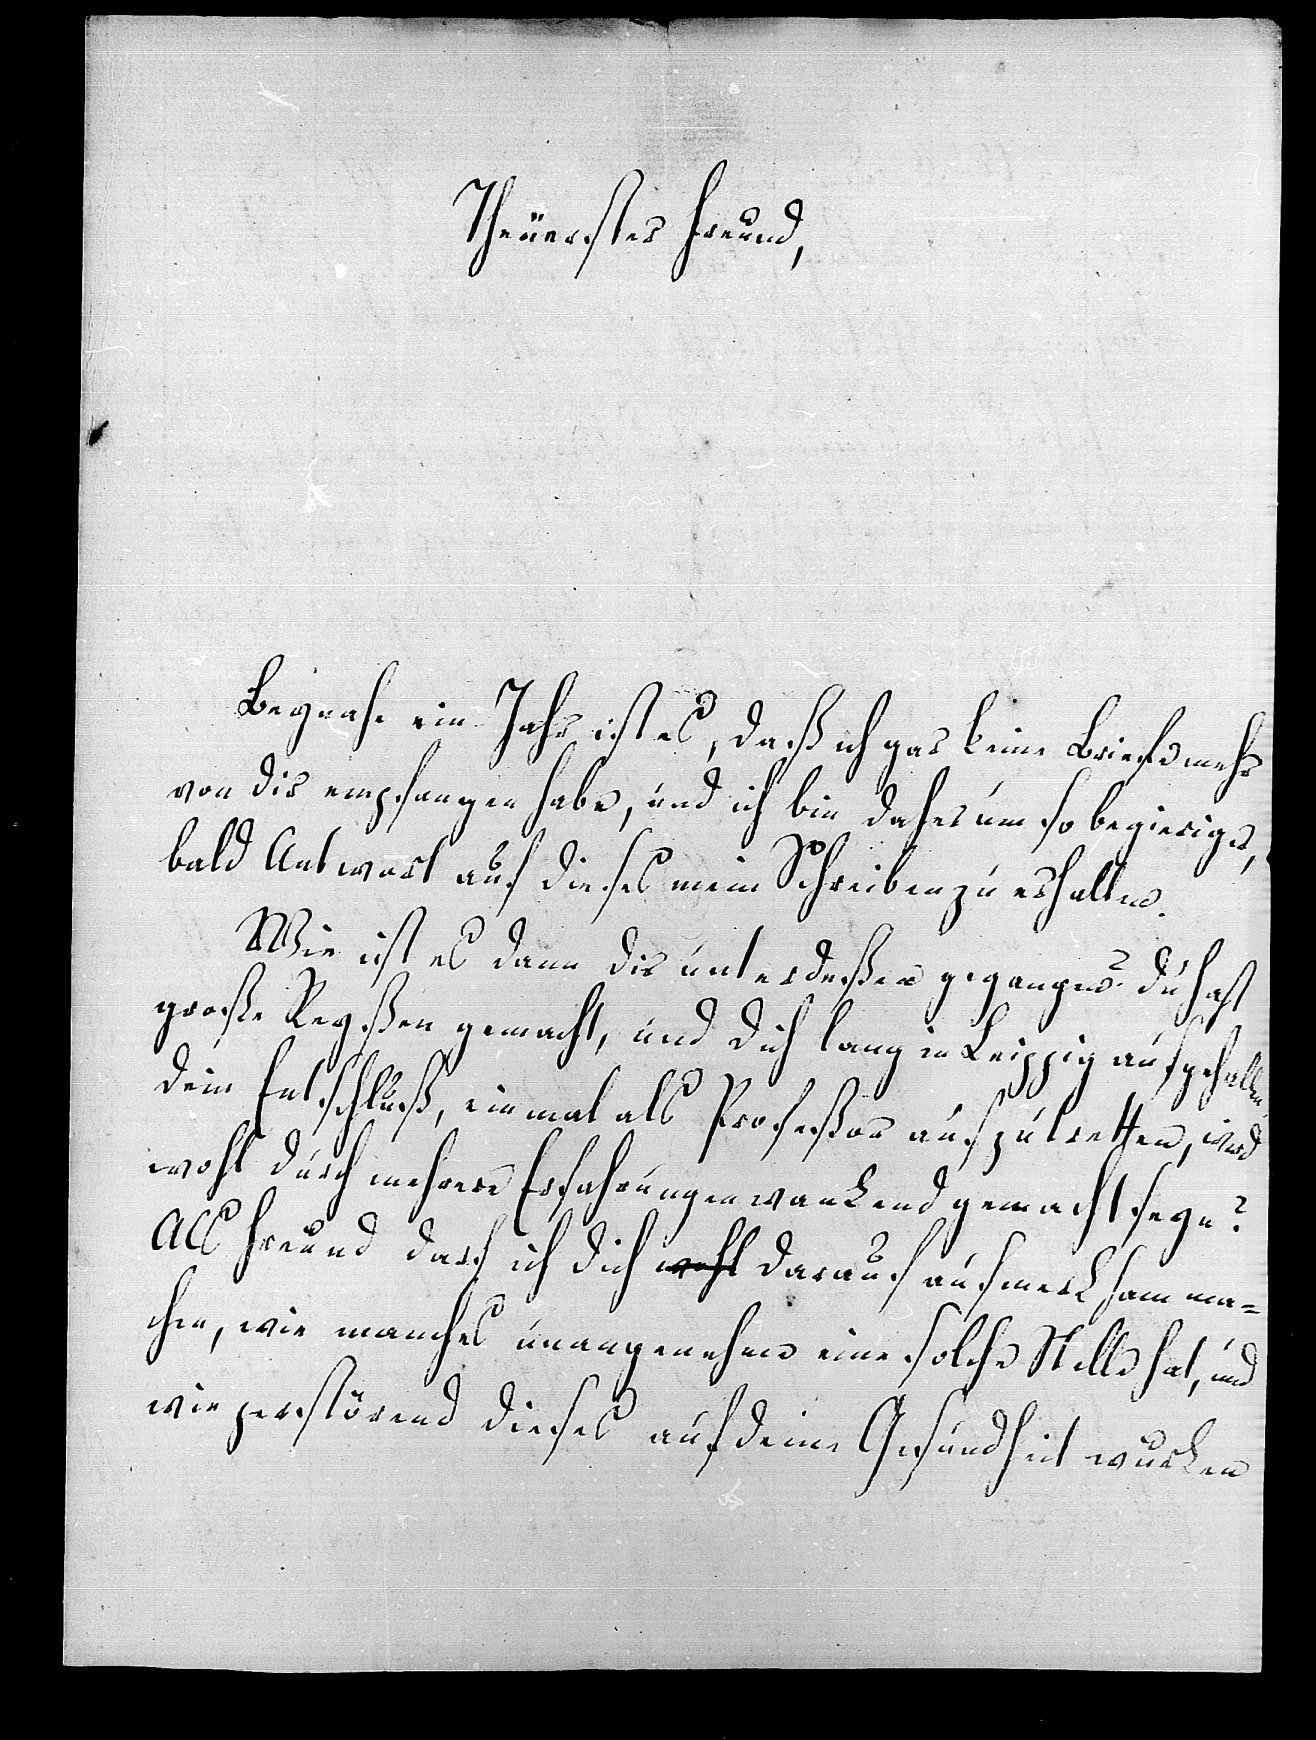 Theüerster Freund,
Beynahe ein Jahr ist es, daß ich gar keine Briefe mehr
von dir empfangen habe, und ich bin daher um so begieriger,
bald Antwort auf dieses mein Schreiben zu erhalten.
Wie ist es dann dir unterdeßen gegangen? du hast
große Reyßen gemacht, und dich lang in Leipzig aufgehalten,
dein Entschluß, einmal als Profeßor aufzutretten, wird
wohl durch mehrere Erfahrungen wankend gemacht seyn?
Als Freund darf ich dich wohl darauf aufmerksam ma=
chen, wie manches unangenehme eine solche Stelle hat, und
wie zerstörend dieses auf deine Gesundheit wurken